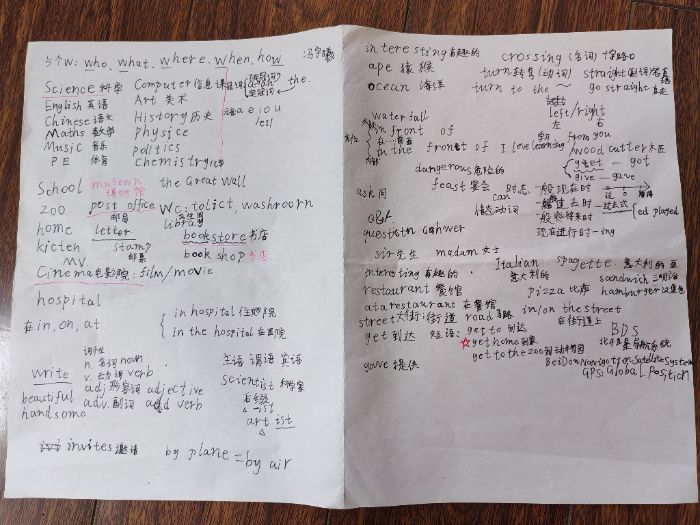 5个W: who, what, where, when, how 冯宇曦
Science 科学 Computer 信息课 冠词 a an 定冠词 the.
English 英语 Art 美术
Chinese 语文 History 历史 元音 a e i o u
Maths 数学 physice /es/
Music 音乐 politics
PE 体育 chemistry 化学
School museum 博物馆 the Great Wall
zoo post office 邮局 WC: tolict, washroom
home letter library
kicten stamp 邮票 bookstore 书店
MV. book shop 书店
Cinema 电影院: film/movie
hospital
在 in, on, at
in hospital 住院
in the hospital 在医院
词性
n. 名词 noun 主语 谓语 英语
write v. 动词 verb scientist 科学家
beautiful adj 形容词 adjective 后缀 -ist
handsome adv. 副词 add verb artist
invites 邀请 by plane = by air
interesting 有趣的 crossing (名词) 十字路口
ape 猿猴 turn 转弯 (动词) straight
ocean 海洋 turn to the ~ go straight 直走
left/right
左 右
waterfall
in front of 在…前面 from you
in the front of I love learning woodcutter 木匠
get — got
give — gave
dangerous 危险的
feast 宴会 时态: 一般现在时
ask 问 can 一般过去时 — 过去式 ed played
情态动词 一般将来时
现在进行时 -ing
sir 先生 madam 女士
interesting 有趣的. Italian 意大利的 spagette. 意大利的面
restaurant 餐馆 sandwich 三明治
pizza 比萨 hamburger 汉堡包
at a restaurant 在餐馆
street 大街; 街道 road in/on the street
在街道上
get 到达 短语: get to 到达 BDS
☆ get home 到家
get to the zoo 到动物园 BeiDou Navigation Satellite System
gave 提供 GPS: Global. Position